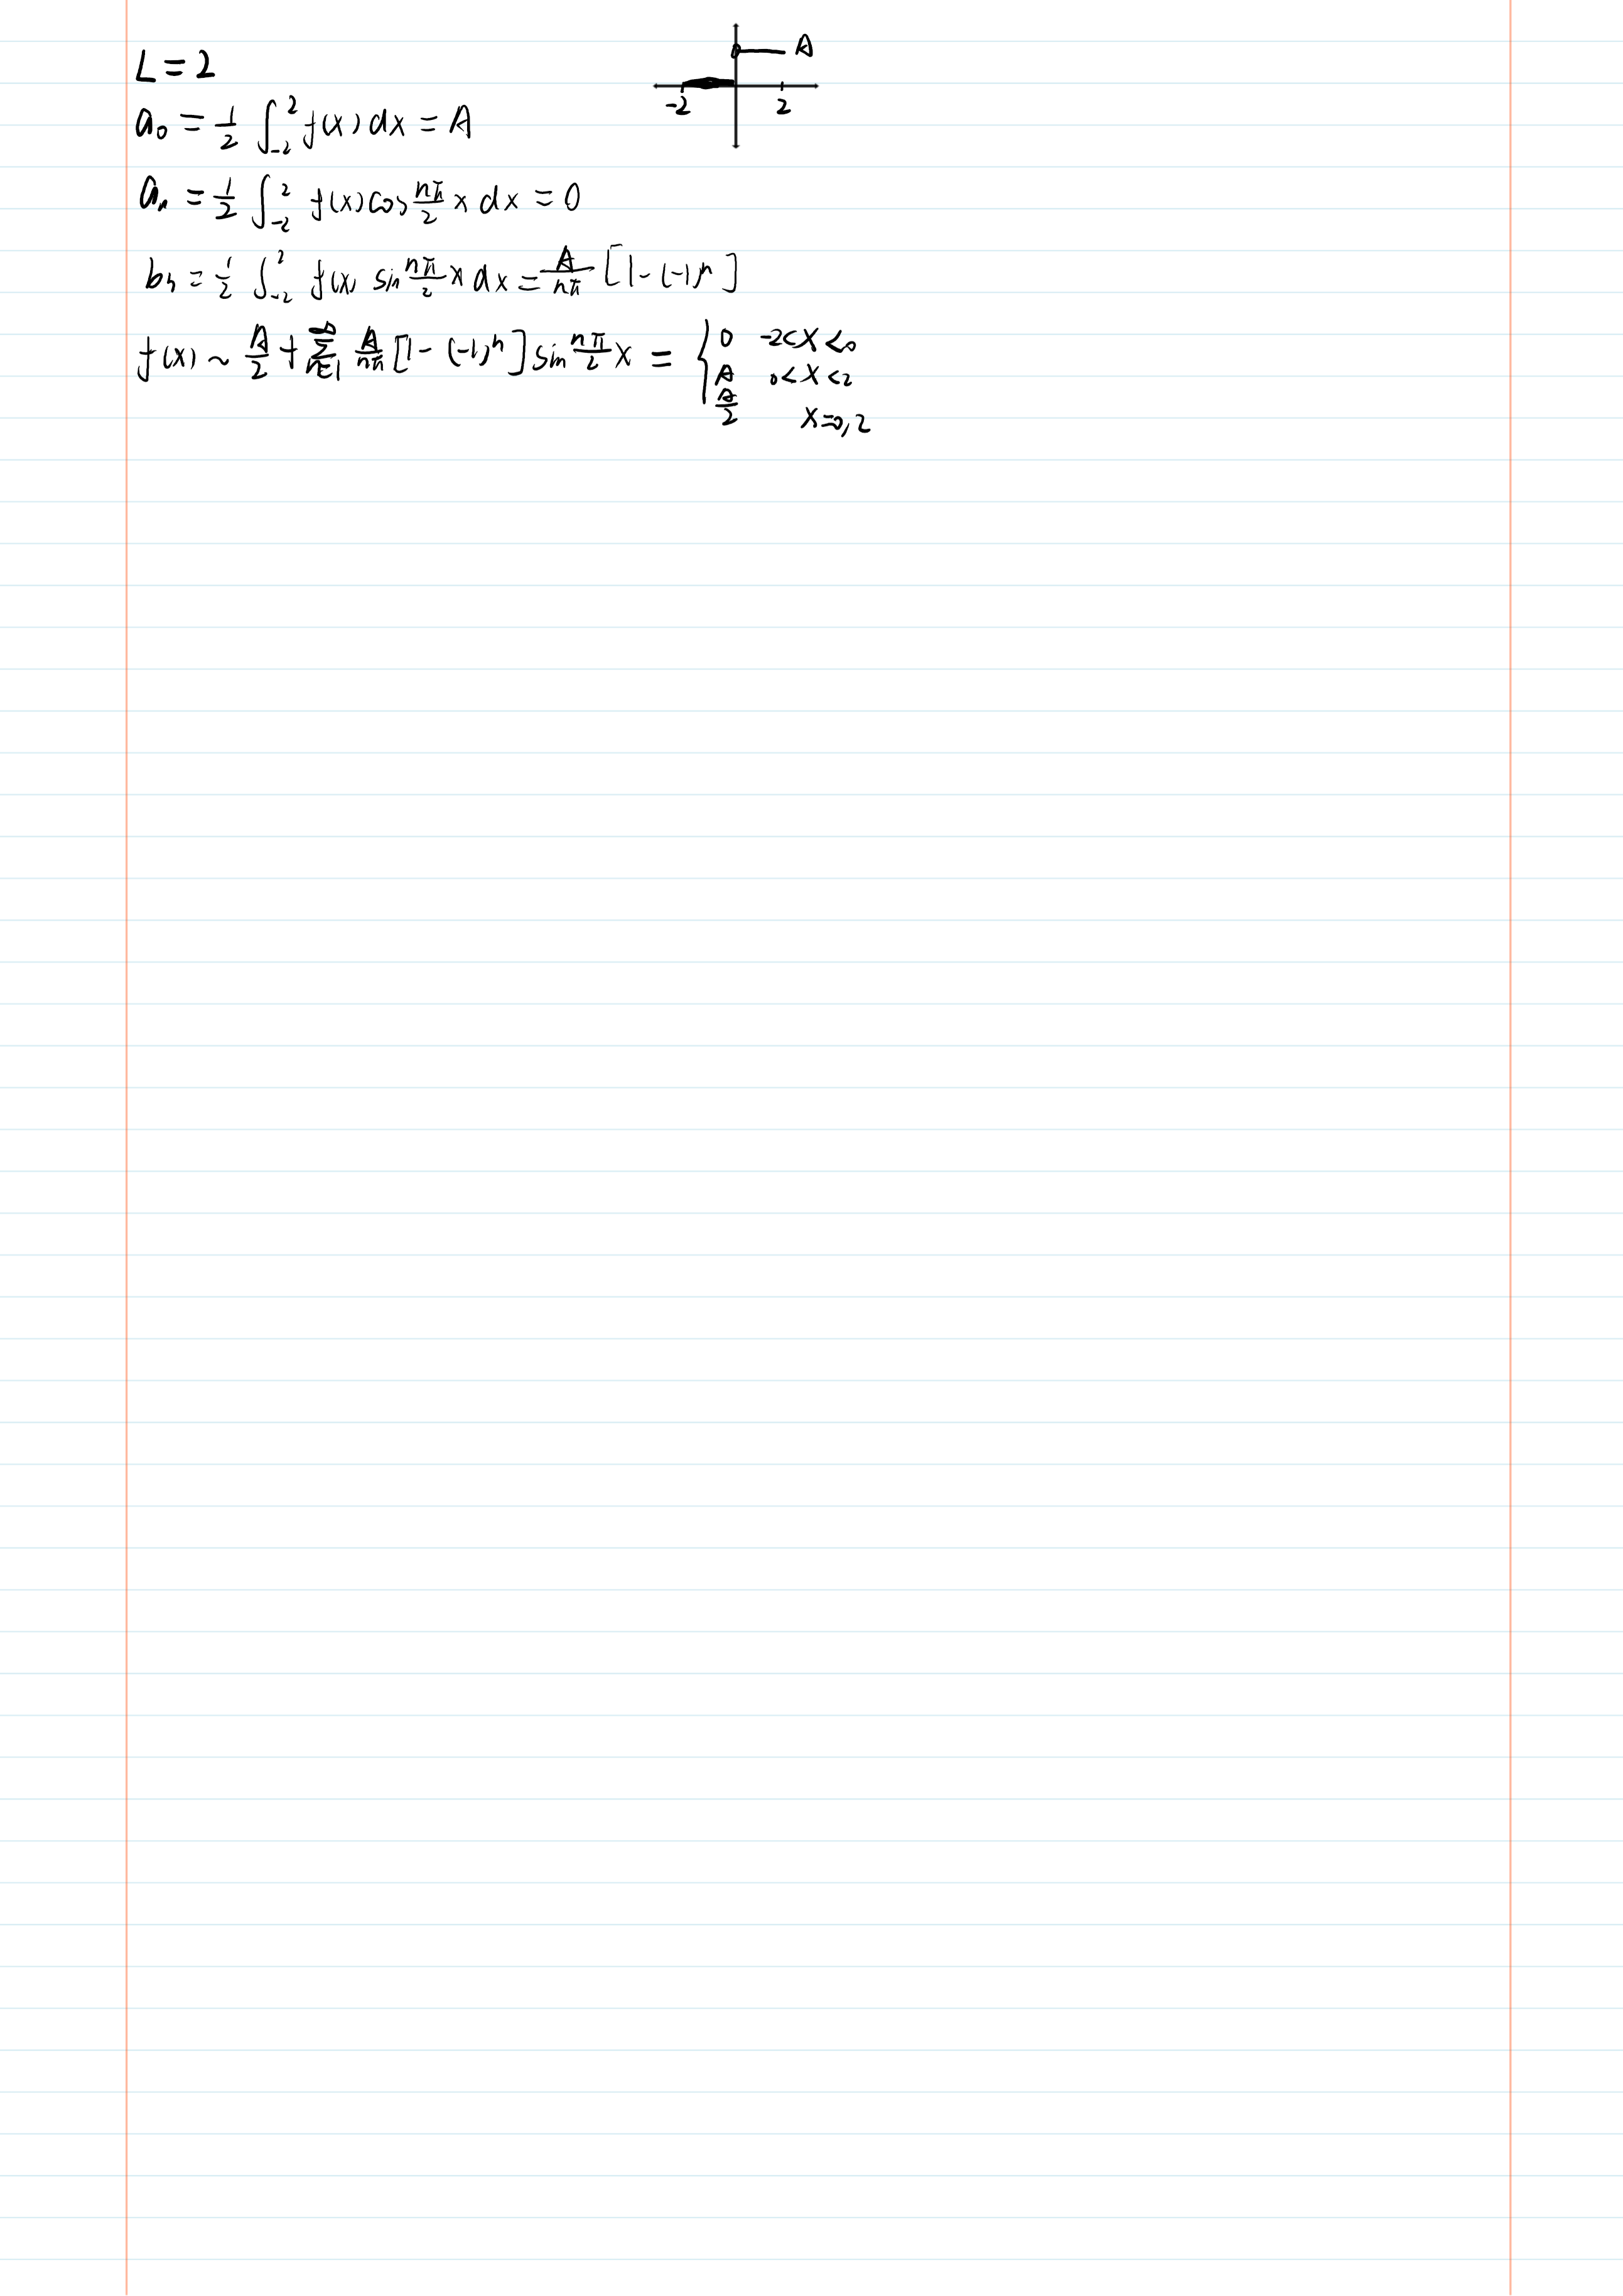 L = 2
A
-2 2
a₀ = 1/2 ∫₋₂² f(x) dx = A
aₙ = 1/2 ∫₋₂² f(x) cos nπ/2 x dx = 0
bₙ = 1/2 ∫₋₂² f(x) sin nπ/2 x dx = A/nπ [1 - (-1)ⁿ]
f(x) ~ A/2 + ∑ₙ₌₁^∞ A/nπ [1 - (-1)ⁿ] sin nπ/2 x = { 0 -2<x<0
A 0<x<2
A/2 x=0,2